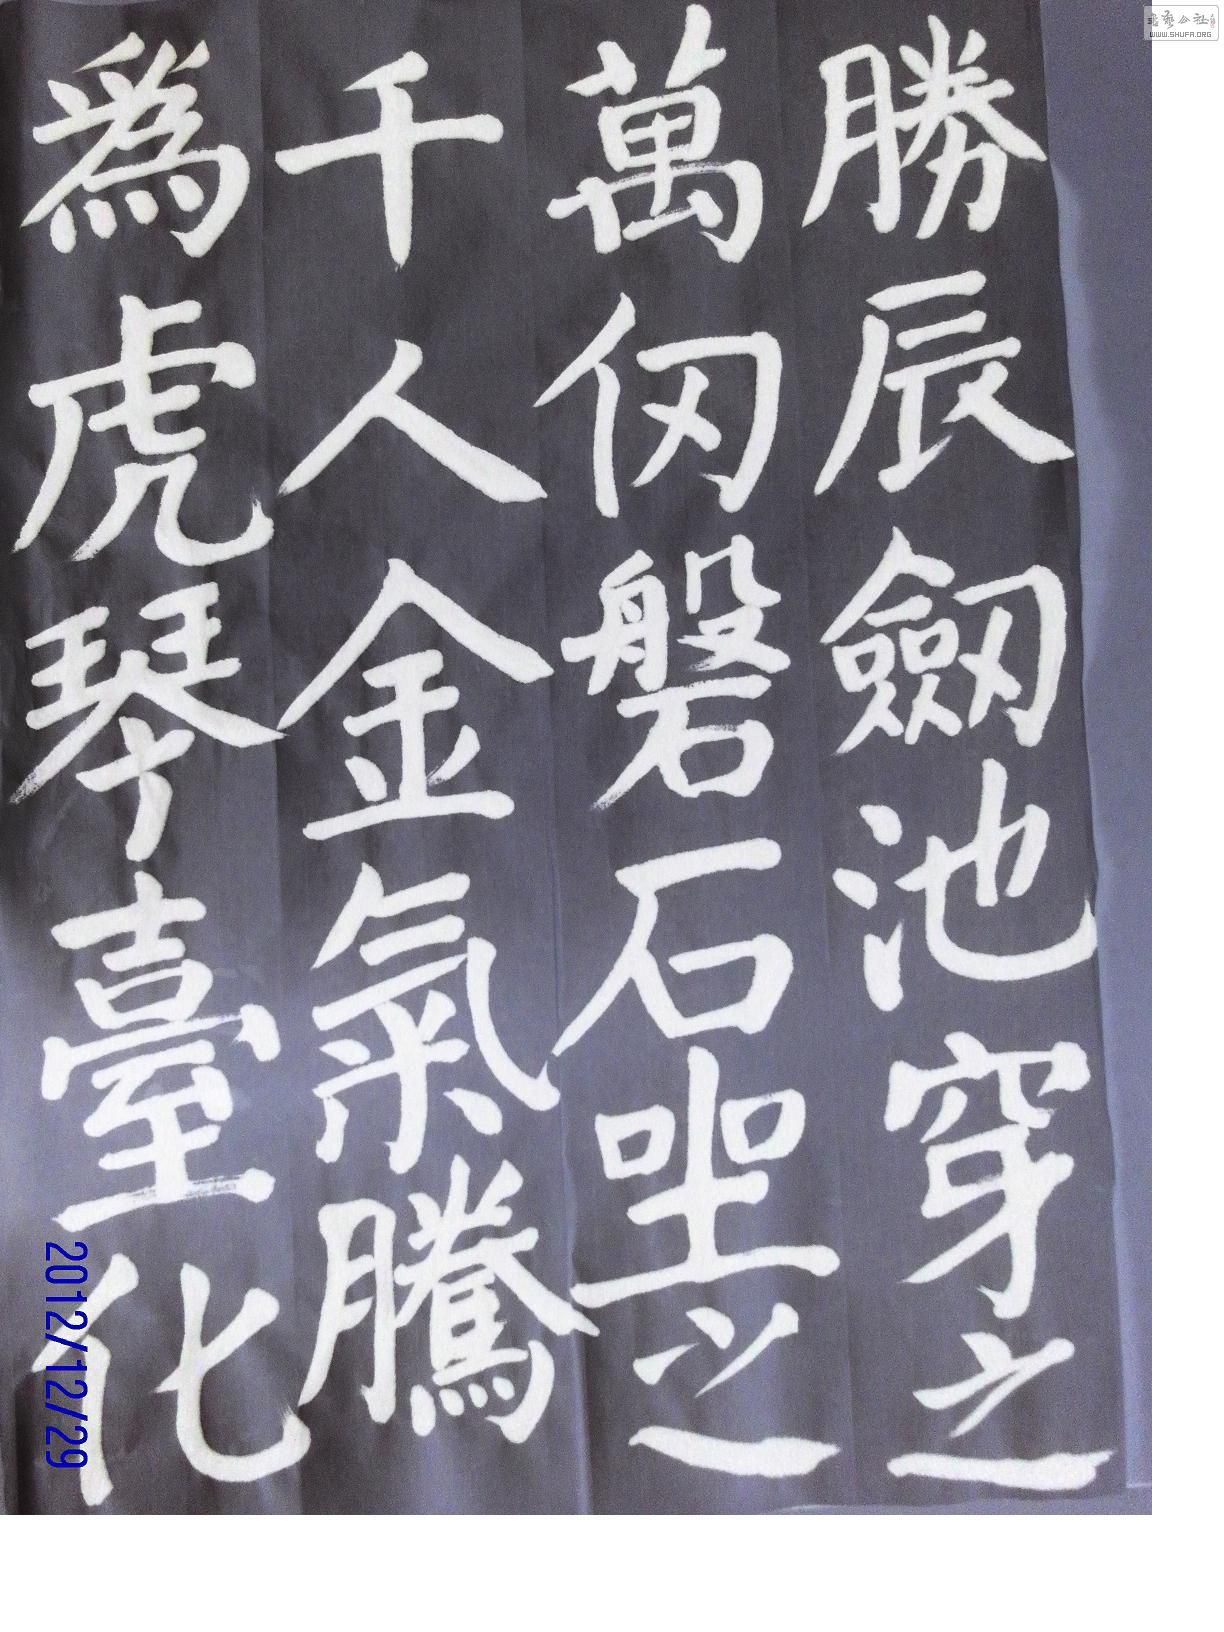 勝辰劒池穿之
萬仞磐石坐之
千人金氣騰
為虎琴臺化
2012/12/29
WWW.SHUFA.ORG